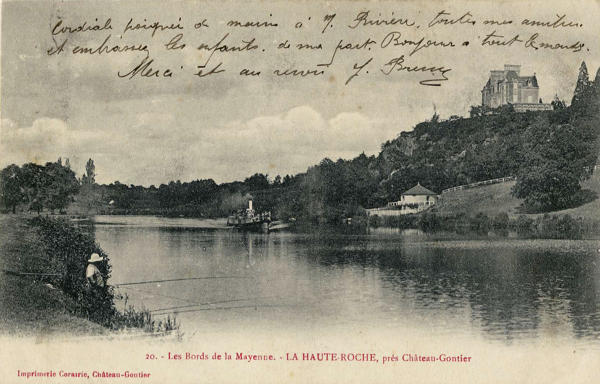 Cordial poignée de mains à J. Rivière, toutes mes amitiés
et embrasse les enfants, de ma part. Bonjour à tout le monde.
Merci et au revoir J.
20. - Les Bords de la Mayenne. - LA HAUTE-ROCHE, prés Château-Gontier
Imprimerie Coraírie, Château-Gontier